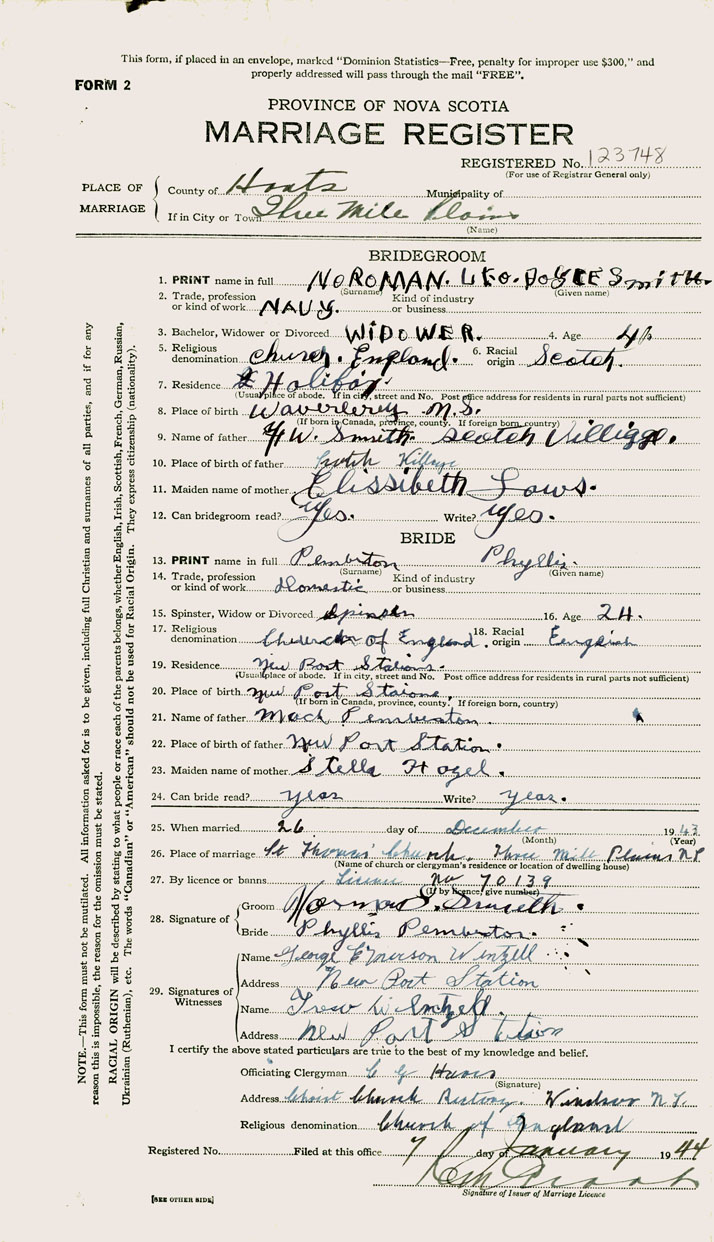 This form, if placed in an envelope, marked "Dominion Statistics—Free, penalty for improper use $300," and
properly addressed will pass through the mail "FREE".
FORM 2
PROVINCE OF NOVA SCOTIA
MARRIAGE REGISTER
REGISTERED No. 123748
(For use of Registrar General only)
PLACE OF MARRIAGE
County of Hants Municipality of
If in City or Town Three Mile Plains
(Name)
BRIDEGROOM
1. PRINT name in full NOROMAN. LEO. DOYLE Smith.
(Surname) (Given name)
2. Trade, profession or kind of work NAVY. Kind of industry or business
3. Bachelor, Widower or Divorced WIDOWER. 4. Age
5. Religious denomination church. England. 6. Racial origin Scotch.
7. Residence Holifax.
(Usual place of abode. If in city, street and No. Post office address for residents in rural parts not sufficient)
8. Place of birth Waverlery N.S.
(If born in Canada, province, county. If foreign born, country)
9. Name of father W. Smith. Scotch Villigge.
10. Place of birth of father Scotch Village
11. Maiden name of mother Elissibeth Laws.
12. Can bridegroom read? Yes. Write? Yes.
BRIDE
13. PRINT name in full Pemberton Phyllis.
(Surname) (Given name)
14. Trade, profession or kind of work Domestic Kind of industry or business
15. Spinster, Widow or Divorced Spinster 16. Age 24.
17. Religious denomination Church of England. 18. Racial origin Eengish
19. Residence New Port Stations.
(Usual place of abode. If in city, street and No. Post office address for residents in rural parts not sufficient)
20. Place of birth New Port Staions.
(If born in Canada, province, county. If foreign born, country)
21. Name of father Mack Pemberston.
22. Place of birth of father New Port Station.
23. Maiden name of mother Stella Hogel.
24. Can bride read? Year Write? Year.
25. When married 26 day of December 1943
(Month) (Year)
26. Place of marriage St Thomas' Church, Three Mile Plains N.S.
(Name of church or clergyman's residence or location of dwelling house)
27. By licence or banns License No 70139
(If by licence, give number)
28. Signature of
Groom Norman S. Smith.
Bride Phyllis Pemberton.
29. Signatures of Witnesses
Name George Emerson Wentzell
Address New Port Station
Name Wentzell.
Address New Port Station
I certify the above stated particulars are true to the best of my knowledge and belief.
Officiating Clergyman
(Signature)
Address Christ Church Rectory, Windsor N.S.
Religious denomination Church of England
Registered No. Filed at this office 7 day of January 1944
Signature of Issuer of Marriage Licence
[SEE OTHER SIDE]
NOTE.—This form must not be mutilated. All information asked for is to be given, including full Christian and surnames of all parties, and if for any
reason this is impossible, the reason for the omission must be stated.
RACIAL ORIGIN will be described by stating to what people or race each of the parents belongs, whether English, Irish, Scottish, French, German, Russian,
Ukrainian (Ruthenian), etc. The words "Canadian" or "American" should not be used for Racial Origin. They express citizenship (nationality).